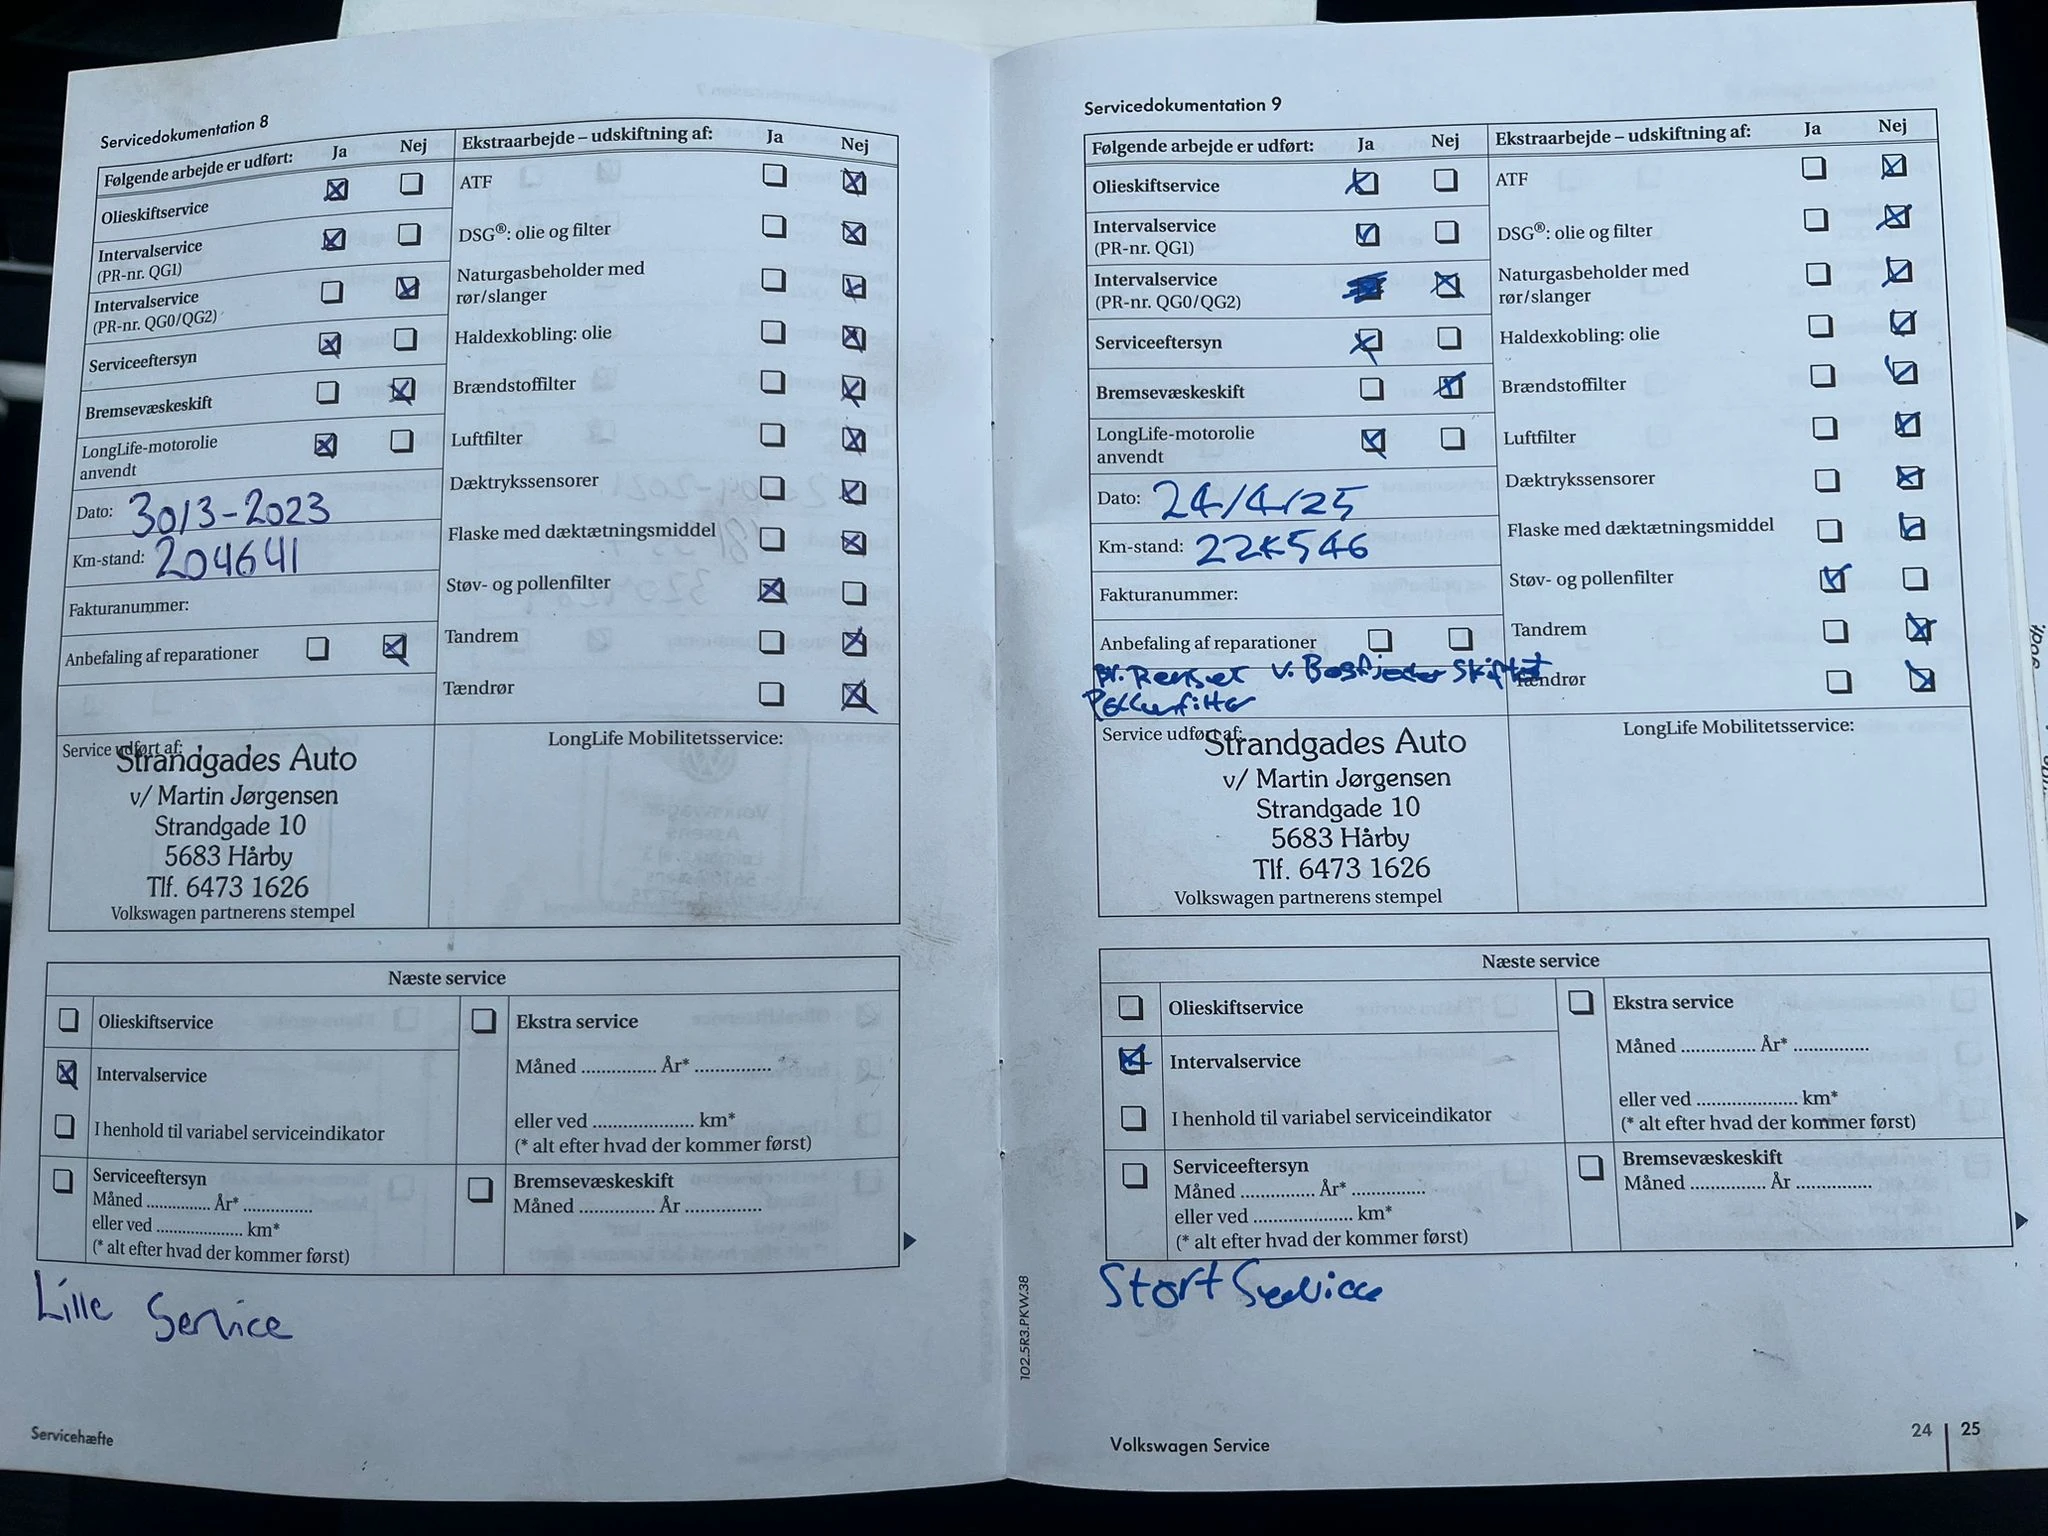 Servicedokumentation 8
Følgende arbejde er udført: Ja Nej
Olieskiftservice
Intervalservice
(PR-nr. QG1)
Intervalservice
(PR-nr. QG0/QG2)
Serviceeftersyn
Bremsevæskeskift
LongLife-motorolie
anvendt
Dato: 30/3-2023
Km-stand: 204641
Fakturanummer:
Anbefaling af reparationer
Ekstraarbejde – udskiftning af: Ja Nej
ATF
DSG®: olie og filter
Naturgasbeholder med
rør/slanger
Haldexkobling: olie
Brændstoffilter
Luftfilter
Dæktrykssensorer
Flaske med dæktætningsmiddel
Støv- og pollenfilter
Tandrem
Tændrør
Service udført af:
Strandgades Auto
v/ Martin Jørgensen
Strandgade 10
5683 Hårby
Tlf. 6473 1626
Volkswagen partnerens stempel
LongLife Mobilitetsservice:
Næste service
Olieskiftservice
Intervalservice
I henhold til variabel serviceindikator
Serviceeftersyn
Måned .............. År* ...............
eller ved ................... km*
(* alt efter hvad der kommer først)
Ekstra service
Måned ................ År* ................
eller ved ..................... km*
(* alt efter hvad der kommer først)
Bremsevæskeskift
Måned ................ År ................
Lille Service
Servicehæfte
Servicedokumentation 9
Følgende arbejde er udført: Ja Nej
Olieskiftservice
Intervalservice
(PR-nr. QG1)
Intervalservice
(PR-nr. QG0/QG2)
Serviceeftersyn
Bremsevæskeskift
LongLife-motorolie
anvendt
Dato: 24/4/25
Km-stand:
Fakturanummer:
Anbefaling af reparationer
Renset v. Skiftet
Pollenfilter
Ekstraarbejde – udskiftning af: Ja Nej
ATF
DSG®: olie og filter
Naturgasbeholder med
rør/slanger
Haldexkobling: olie
Brændstoffilter
Luftfilter
Dæktrykssensorer
Flaske med dæktætningsmiddel
Støv- og pollenfilter
Tandrem
Tændrør
Service udført af:
Strandgades Auto
v/ Martin Jørgensen
Strandgade 10
5683 Hårby
Tlf. 6473 1626
Volkswagen partnerens stempel
LongLife Mobilitetsservice:
Næste service
Olieskiftservice
Intervalservice
I henhold til variabel serviceindikator
Serviceeftersyn
Måned ................ År* ................
eller ved ..................... km*
(* alt efter hvad der kommer først)
Ekstra service
Måned ................ År* ................
eller ved ..................... km*
(* alt efter hvad der kommer først)
Bremsevæskeskift
Måned ................ År ................
Stort Service
102.5R3.PKW.38
Volkswagen Service
24 | 25